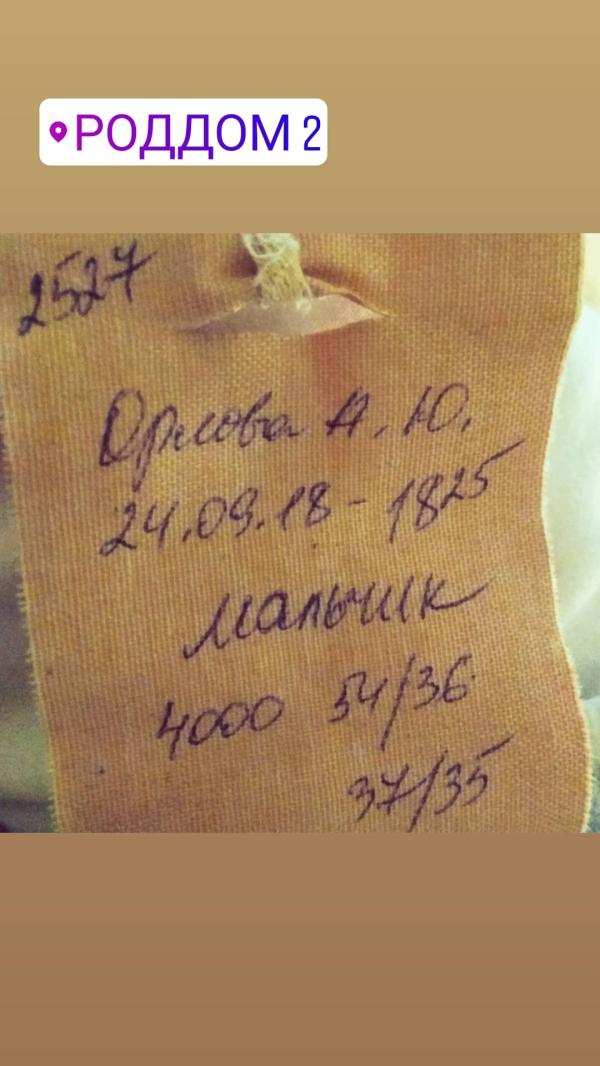 РОДДОМ 2
2527
Орлова А. Ю.
24.09.18 - 18 25
мальчик
4000 54/36
37/35